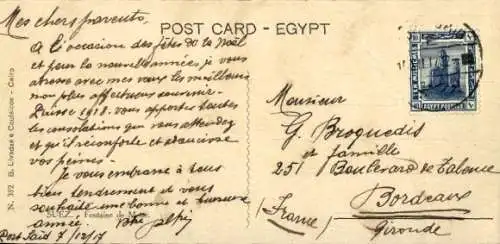 Mes chers parents,
POST CARD - EGYPT
A l'occasion des fêtes de la Noël
et pour la nouvelle année, je vous
adresse avec mes vœux les meilleurs
mon plus affectueux souvenir.
Puisse 1918 vous apporter toutes
les consolations que vous attendez
et qu'il réconforte et adoucisse
vos peines.
Je vous embrasse à tous
bien tendrement et vous
souhaite une bonne et heureuse
année.
Port Said 7/12/17
SUEZ. Fontaine de
N. 302 B. Livadas & Coutsicos - Cairo
EGYPT POSTAGE
Monsieur
G. Broquedis
et famille
251 Boulevard de Talence
Bordeaux
(France) Gironde